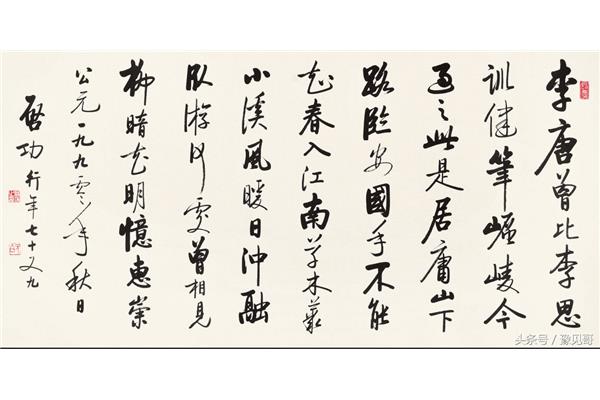 李唐曾比李思
訓健筆崛崚今
過之此是居庸山下
路臨安國手不能
知春入江南草木叢
小溪風暖日沖融
臥游何處曾相見
柳暗花明憶惠崇
公元一九九零年秋日
啟功行年七十又九
头条号/豫见哥